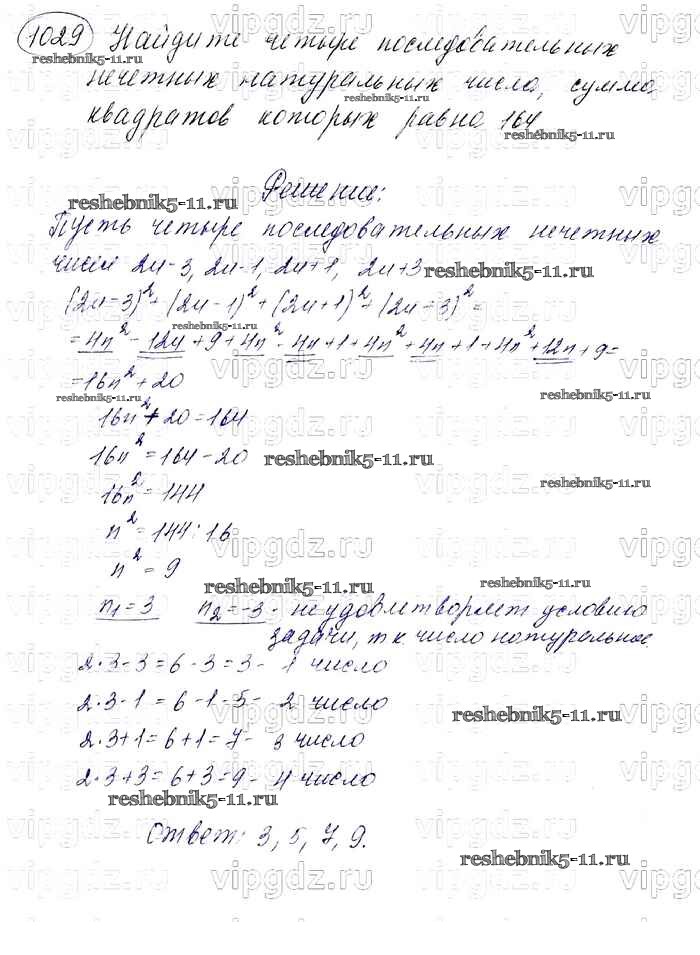 1029 Найдите четыре последовательных
нечетных натуральных числа, сумма
квадратов которых равна 164
Решение:
Пусть четыре последовательных нечетных
чисел 2n-3, 2n-1, 2n+1, 2n+3
(2n-3)²+(2n-1)²+(2n+1)²+(2n+3)²=
=4n²-12n+9+4n²-4n+1+4n²+4n+1+4n²+12n+9=
=16n²+20
16n²+20=164
16n²=164-20
16n²=144
n²=144:16
n²=9
n₁=3 n₂=-3 - не удовлетворяет условию
задачи, т.к число натуральное.
2·3-3=6-3=3- 1 число
2·3-1=6-1=5- 2 число
2·3+1=6+1=7- 3 число
2·3+3=6+3=9- 4 число
Ответ: 3, 5, 7, 9.
reshebnik5-11.ru
vipgdz.ru